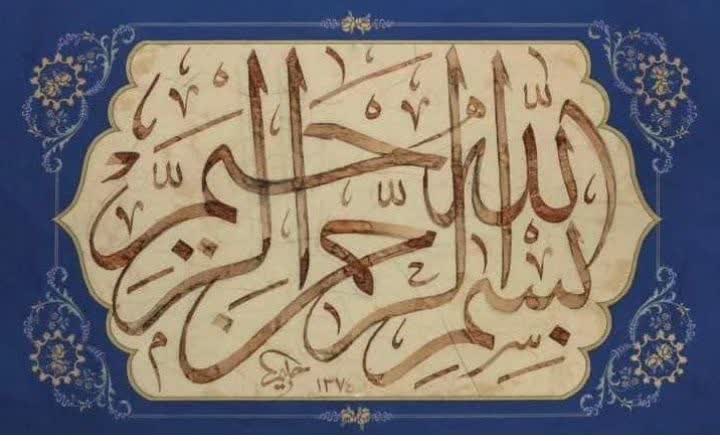 بِسْمِ اللّٰهِ الرَّحْمٰنِ الرَّحِيمِ
حليم
١٣٧٤